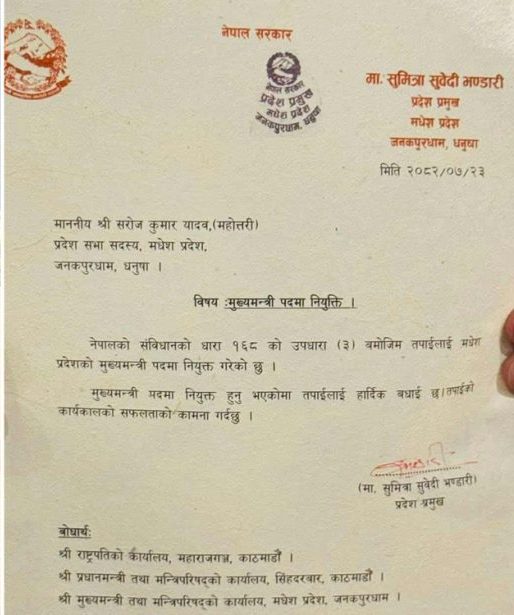 नेपाल सरकार
नेपाल सरकार
प्रदेश प्रमुख
मधेश प्रदेश
जनकपुरधाम, धनुषा
मा. सुमित्रा सुवेदी भण्डारी
प्रदेश प्रमुख
मधेश प्रदेश
जनकपुरधाम, धनुषा
मिति २०८२/०७/२३
माननीय श्री सरोज कुमार यादव,(महोत्तरी)
प्रदेश सभा सदस्य, मधेश प्रदेश,
जनकपुरधाम, धनुषा ।
विषय :मुख्यमन्त्री पदमा नियुक्ति ।
नेपालको संविधानको धारा १६८ को उपधारा (३) बमोजिम तपाईलाई मधेश
प्रदेशको मुख्यमन्त्री पदमा नियुक्त गरेको छु ।
मुख्यमन्त्री पदमा नियुक्त हुनु भएकोमा तपाईलाई हार्दिक बधाई छ।तपाईको
कार्यकालको सफलताको कामना गर्दछु ।
(मा. सुमित्रा सुवेदी भण्डारी)
प्रदेश प्रमुख
बोधार्थः
श्री राष्ट्रपतिको कार्यालय, महाराजगञ्ज, काठमाडौं ।
श्री प्रधानमन्त्री तथा मन्त्रिपरिषद्को कार्यालय, सिंहदरबार, काठमाडौं ।
श्री मुख्यमन्त्री तथा मन्त्रिपरिषद्को कार्यालय, मधेश प्रदेश, जनकपुरधाम ।